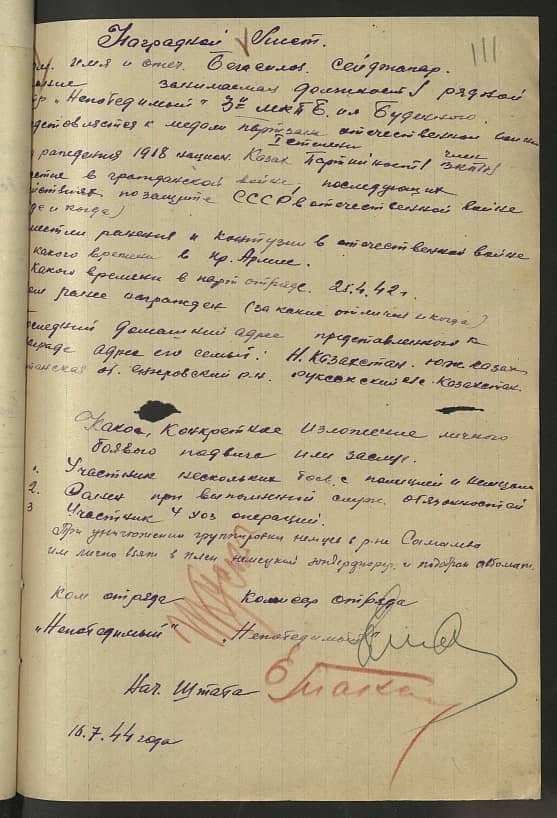 Наградной Лист.
111
имя и отеч. Бегасилов Сейджапар.
занимаемая должность рядной
"Непобедимый" 3й МКПБ. им Будиного.
к медали партизан отечественной войны
I степени
рождения 1918 национ. Казах партийность член ВКП(б)
в гражданской войне, последующих
действиях по защите СССР в отечественной войне
где и когда)
ранения и контузии в отечественной войне
какого времени в Кр. Армие.
какого времени в парт отряде. 21.4.42г.
ем ранее награжден (за какие отличия и когда)
последний домашний адрес представленного к
награде адрес его семьи: Н. Казахстан. юж казах
р.н. Казахстан.
Конкретное изложение личного
боевого подвига или заслуг.
1. Участник нескольких боев с полицией и немцами
2. Ранен при выполнении служ. обязанностей
3 Участник 4 хоз операций.
При уничтожении группировки немцев в р-не
им лично взят в плен немецкий и подобран автомат.
Ком отряда Комиссар отряда
"Непобедимый" "Непобедимый"
Нач. Штаба
16.7.44 года